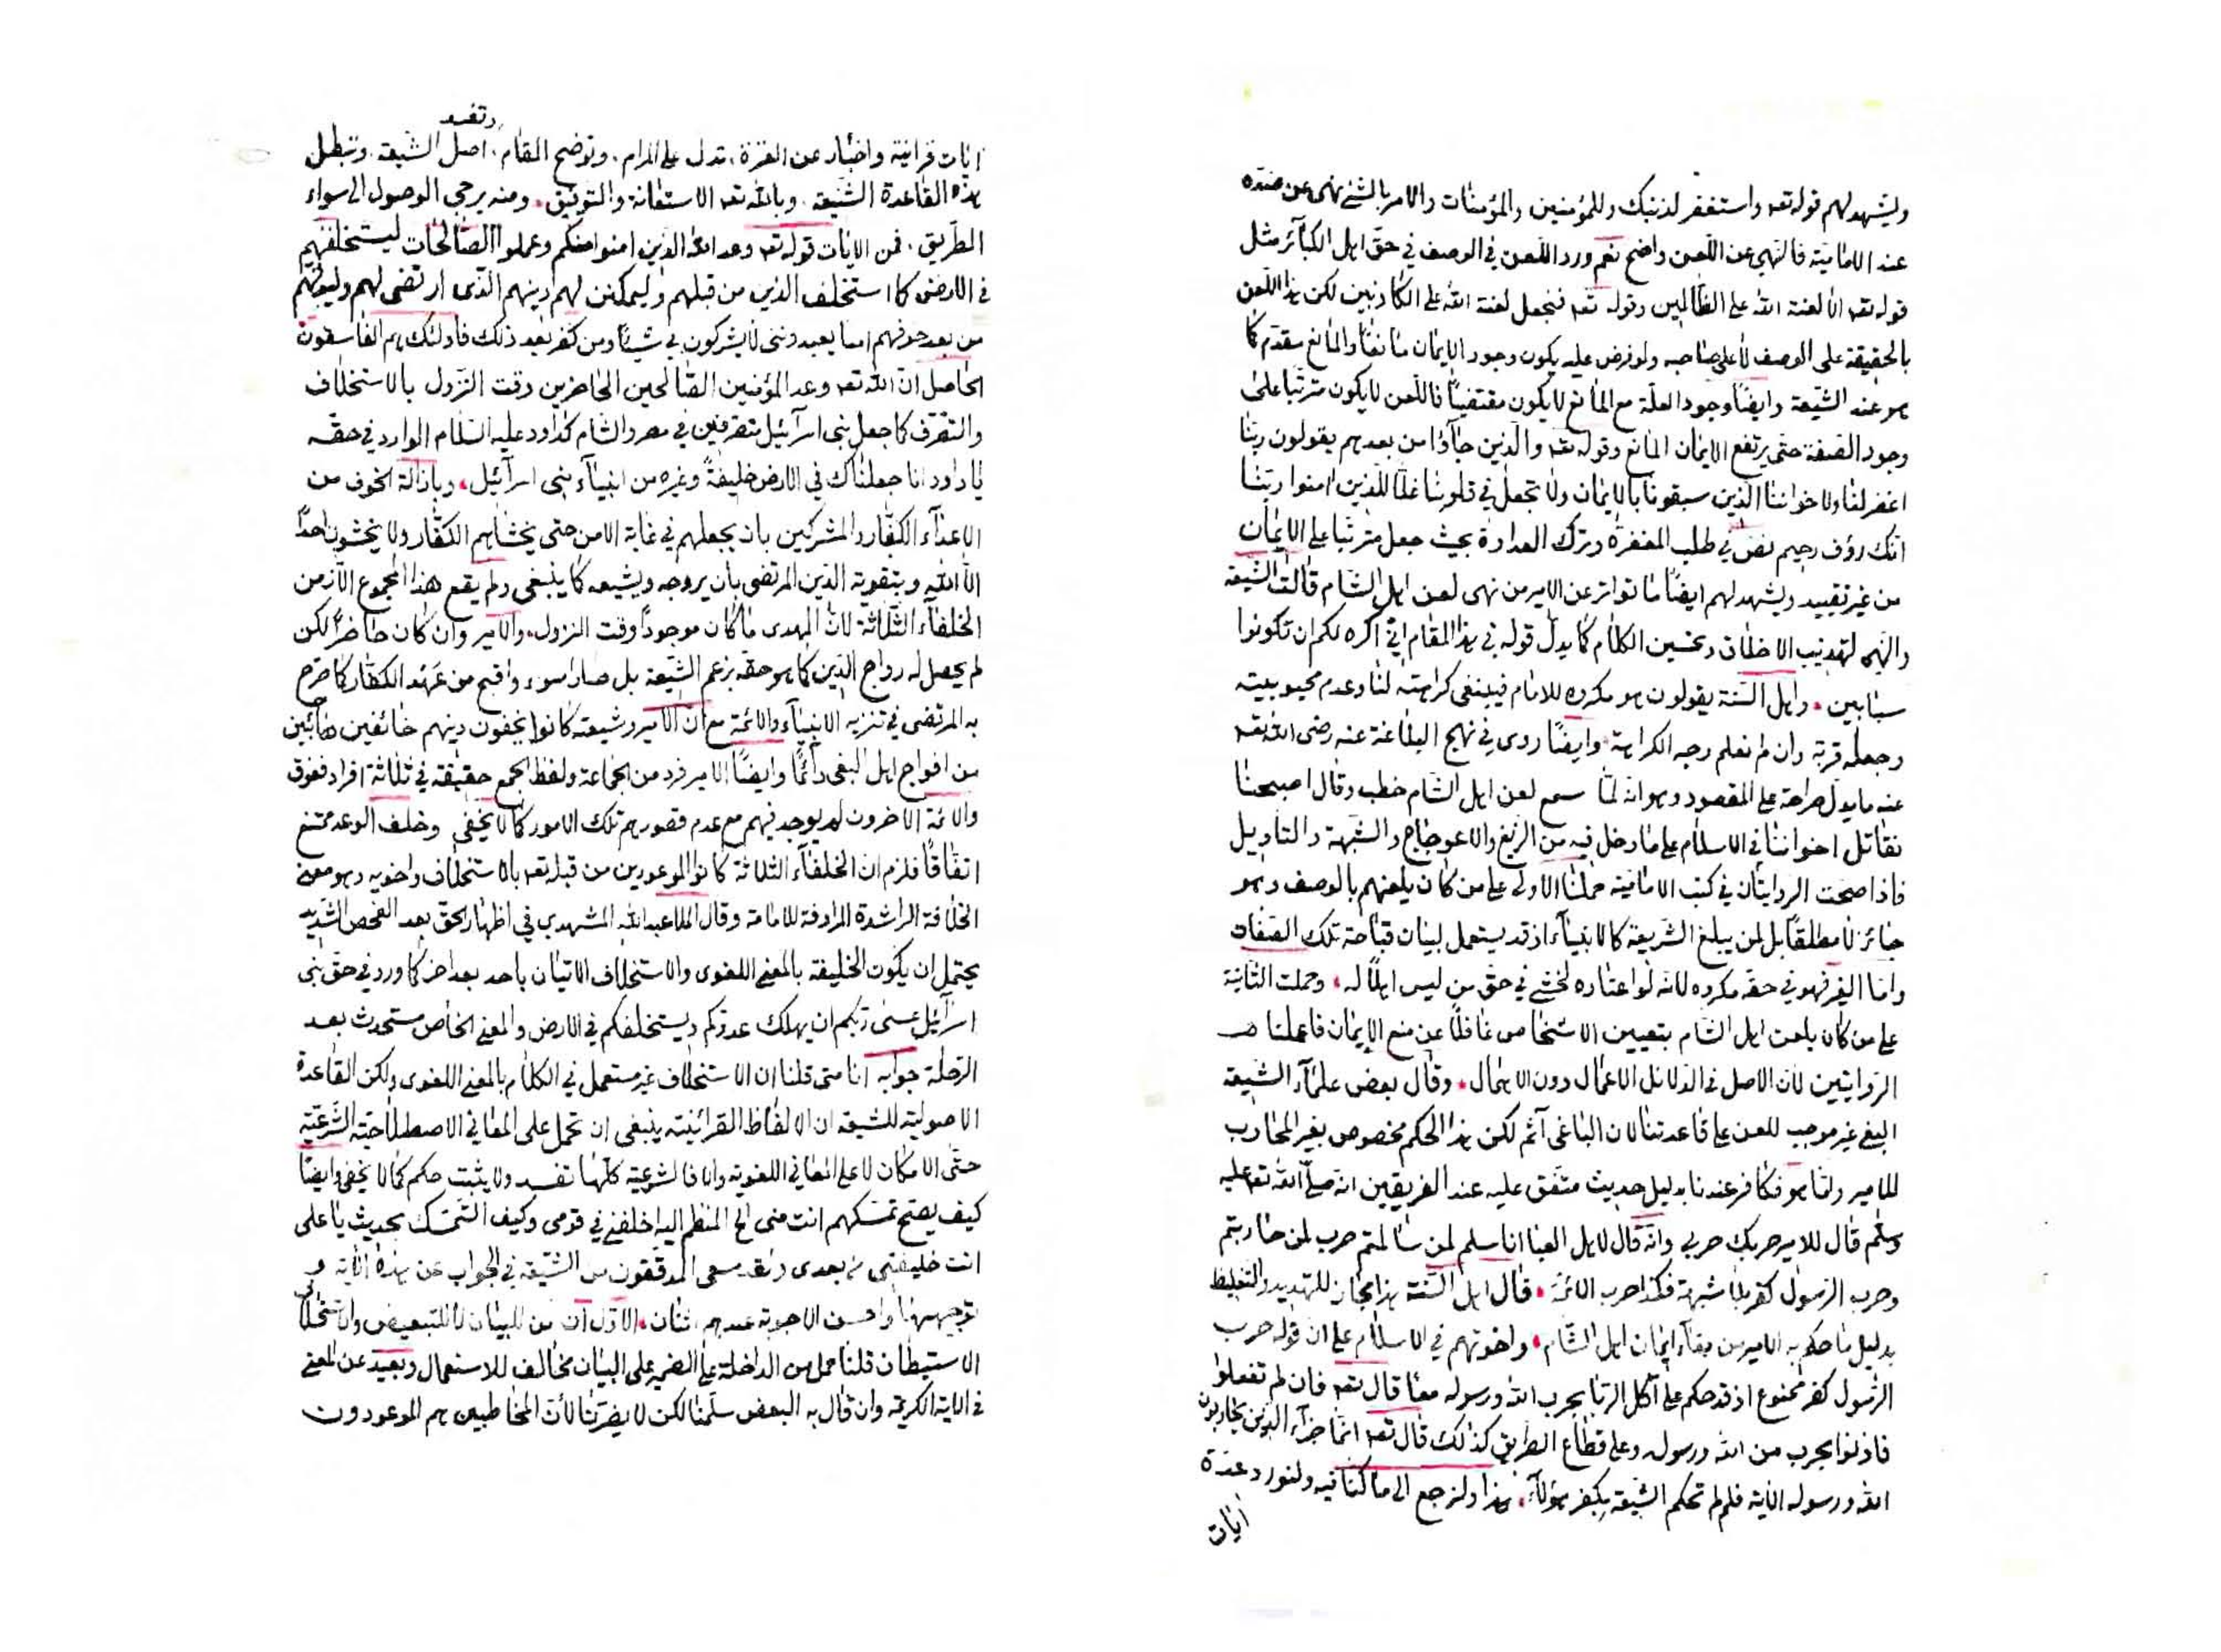 ويشهد لهم قوله تعه واستغفر لذنبك وللمؤمنين والمؤمنات والامر بالشئ نهى عن ضده
عند الامامية فالنهي عن اللعن واضح نعم ورد اللعن في الوصف في حق اهل الكبآئر مثل
قوله تعه الا لعنة الله على الظالمين وقوله تعه فنجعل لعنة الله على الكاذبين لكن هذا اللعن
بالحقيقة على الوصف لا على صاحبه ولو فرض عليه يكون وجود الايمان مانعا والمانع مقدم كما
هو عند الشيعة وايضا وجود العلة مع المانع لا يكون مقتضيا فاللعن لا يكون مترتبا على
وجود الصفة حتى يرتفع الايمان المانع وقوله تعه والذين جآؤا من بعدهم يقولون ربنا
اغفر لنا ولاخواننا الذين سبقونا بالايمان ولا تجعل في قلوبنا غلا للذين امنوا ربنا
انك رؤف رحيم نص في طلب المغفرة وترك العداوة بحيث جعل مترتبا على الايمان
من غير تقييد ويشهد لهم ايضا ما تواتر عن الامير من نهى لعن اهل الشام قالت الشيعة
والنهي لتهذيب الاخلاق وتحسين الكلام كما يدل قوله في هذا المقام اني اكره لكم ان تكونوا
سبابين، واهل السنة يقولون هو مكروه للامام فينبغى كراهته لنا وعدم محبوبيته
وجعله قربة وان لم نعلم وجه الكراهة وايضا روى في نهج البلاغة عنه رضى الله تعه
عنه ما يدل صراحة على المقصود وهو انه لما سمع لعن اهل الشام خطب وقال اصبحنا
نقاتل اخواننا في الاسلام على ما دخل فيه من الزيغ والاعوجاج والشبهة والتاويل
فاذا صحت الروايتان في كتب الامامية حملنا الاولى على من كان يلعنهم بالوصف وهو
جائز لا مطلقا بل لمن يبلغ الشريعة كالانبيآء اذ قد يستعمل لبيان قباحة تلك الصفات
واما الغير فهو في حقه مكروه لانه لو اعتاده لخشى في حق من ليس اهلا له، وحملت الثانية
على من كان يلعن اهل الشام بتعيين الاشخاص غافلا عن منع الايمان فاعملنا
الروايتين لان الاصل في الدلائل الاعمال دون الاهمال، وقال بعض علمآء الشيعة
البغي غير موجب للعن على قاعدتنا لان الباغى آثم لكن هذا الحكم مخصوص بغير المحارب
للامير واما هو فكافر عندنا بدليل حديث متفق عليه عند الفريقين انه صلى الله تعه عليه
وسلم قال للامير حربك حربي وانه قال لاهل العبا انا سلم لمن سالمتم حرب لمن حاربتم
وحرب الرسول كفر بلا شبهة فكذا حرب الائمة، قال اهل السنة هذا مجاز للتهديد والتغليظ
بدليل ما حكم به الامير من بقآء ايمان اهل الشام، واخوتهم في الاسلام على ان قوله حرب
الرسول كفر ممنوع اذ قد حكم على آكل الربا بحرب الله ورسوله معا قال تعه فان لم تفعلوا
فاذنوا بحرب من الله ورسوله وعلى قطاع الطريق كذلك قال تعه انما جزآء الذين يحاربون
الله ورسوله الاية فلم لم تحكم الشيعة بكفر هؤلآء، هذا ولنرجع الى ما كنا فيه ولنورد عدة
ايات
وتفسد
ايات قرانية واخبار عن العترة، تدل على المرام، وتوضح المقام، اصل الشيعة، وتبطل
هذه القاعدة الشنيعة، وبالله تعه الاستعانة والتوفيق، ومنه يرجى الوصول الى سواء
الطريق، فمن الايات قوله تعه وعد الله الذين امنوا منكم وعملوا الصالحات ليستخلفنهم
في الارض كما استخلف الذين من قبلهم وليمكنن لهم دينهم الذى ارتضى لهم وليبدلنهم
من بعد خوفهم امنا يعبدوننى لا يشركون بي شيئا ومن كفر بعد ذلك فاولئك هم الفاسقون
الحاصل ان الله تعه وعد المؤمنين الصالحين الحاضرين وقت النزول بالاستخلاف
والتصرف كما جعل بنى اسرآئيل متصرفين في مصر والشام كداود عليه السلام الوارد في حقه
يا داود انا جعلناك في الارض خليفة وغيره من انبيآء بنى اسرآئيل، وبازالة الخوف من
الاعدآء الكفار والمشركين بان يجعلهم في غاية الامن حتى يخشاهم الكفار ولا يخشون احدا
الا الله وبتقوية الدين المرتضى بان يروجه ويشيعه كما ينبغى ولم يقع هذا المجموع الا زمن
الخلفآء الثلاثة لان المهدى ما كان موجودا وقت النزول، والامير وان كان حاضرا لكن
لم يحصل له رواج الدين كما هو حقه بزعم الشيعة بل صار اسوء واقبح من عهد الكفار كما صرح
به المرتضى في تنزيه الانبيآء والائمة مع ان الامير وشيعته كانوا يخفون دينهم خائفين هائبين
من افواج اهل البغى دائما وايضا الامير فرد من الجماعة ولفظ الجمع حقيقة في ثلاثة افراد ففوق
والائمة الاخرون لم يوجد فيهم مع عدم قصورهم تلك الامور كما لا يخفى وخلف الوعد ممتنع
اتفاقا فلزم ان الخلفآء الثلاثة كانوا الموعودين من قبله تعه بالاستخلاف واخويه وهو معنى
الخلافة الراشدة المرادفة للامامة وقال الملا عبدالله المشهدي في اظهار الحق بعد الفحص الشديد
يحتمل ان يكون الخليفة بالمعنى اللغوى والاستخلاف الاتيان باحد بعد اخر كما ورد في حق بنى
اسرآئيل عسى ربكم ان يهلك عدوكم ويستخلفكم في الارض والمعنى الخاص مستحدث بعد
الرحلة جوابه انا متى قلنا ان الاستخلاف غير مستعمل في الكلام بالمعنى اللغوى ولكن القاعدة
الاصولية للشيعة ان الالفاظ القرآنية ينبغى ان تحمل على المعاني الاصطلاحية الشرعية
حتى الامكان لا على المعاني اللغوية والا فالشرعية كلها تفسد ولا يثبت حكم كما لا يخفى وايضا
كيف يصح تمسكهم انت منى الخ المنظم اليه اخلفنى في قومى وكيف التمسك بحديث يا على
انت خليفتى من بعدى وقد سعى المدققون من الشيعة في الجواب عن هذه الاية و
توجيهها واحسن الاجوبة عندهم اثنان، الاول ان من للبيان لا للتبعيض والاستخلاف
الاستيطان قلنا حمل من الداخلة على الضمير على البيان مخالف للاستعمال وبعيد عن المعنى
في الاية الكريمة وان قال به البعض سلمنا لكن لا يضرنا لان المخاطبين هم الموعودون